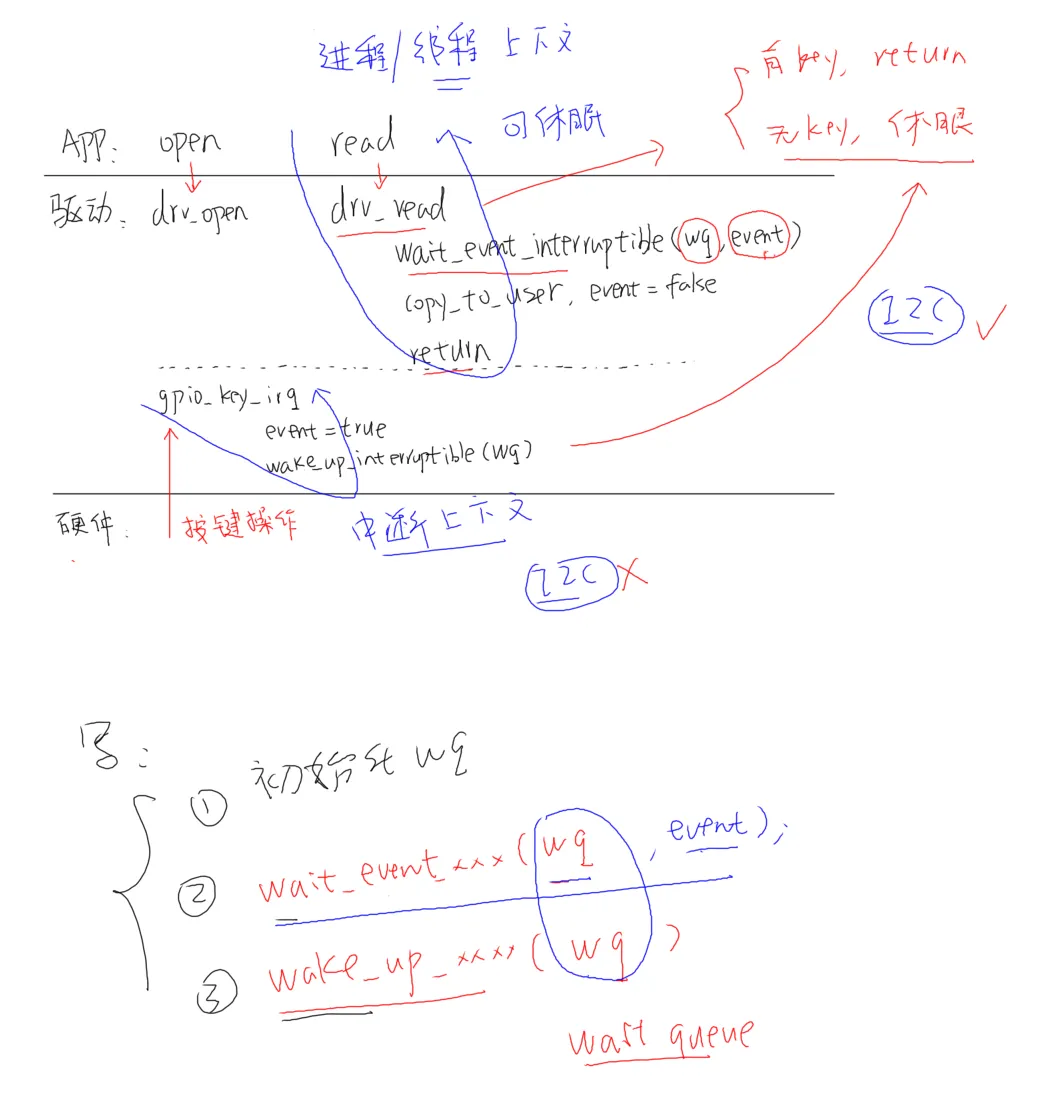 进程/线程 上下文
有key, return
可休眠
无key, 休眠
APP: open read
驱动: drv_open drv_read
wait_event_interruptible(wq, event)
copy_to_user, event=false
I2C
return
gpio_key_irq
event=true
wake_up_interruptible(wq)
硬件: 按键操作 中断上下文
I2C
写:
① 初始化 wq
② wait_event_xxx(wq, event);
③ wake_up_xxxx(wq)
wait queue